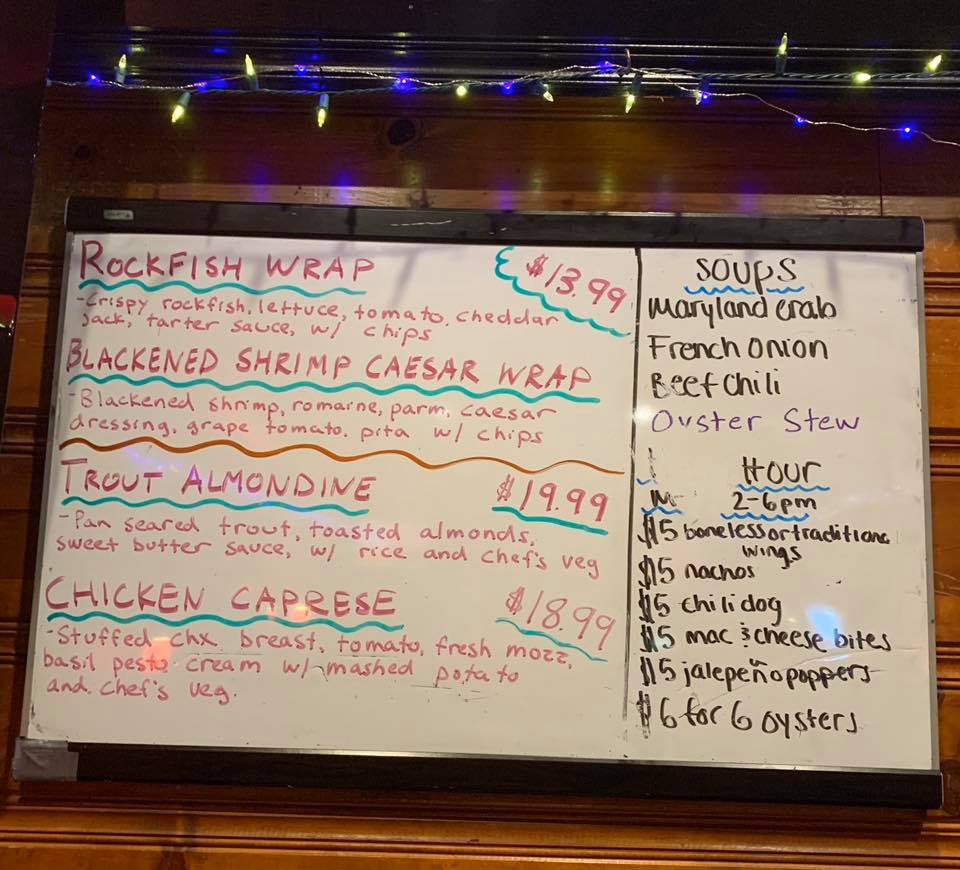 ROCKFISH WRAP $13.99
-Crispy rockfish, lettuce, tomato, cheddar
Jack, tarter sauce, w/ chips
BLACKENED SHRIMP CAESAR WRAP
-Blackened shrimp, romaine, parm, caesar
dressing, grape tomato, pita w/ chips
TROUT ALMONDINE $19.99
-Pan seared trout, toasted almonds,
sweet butter sauce, w/ rice and chef's veg
CHICKEN CAPRESE $18.99
-Stuffed chx breast, tomato, fresh mozz,
basil pesto cream w/ mashed potato
and chef's veg.
SOUPS
Maryland crab
French Onion
Beef Chili
Oyster Stew
HOUR
2-6pm
$5 boneless or traditional
wings
$5 nachos
$5 chili dog
$5 mac & cheese bites
$5 jalepeño poppers
$6 for 6 oysters